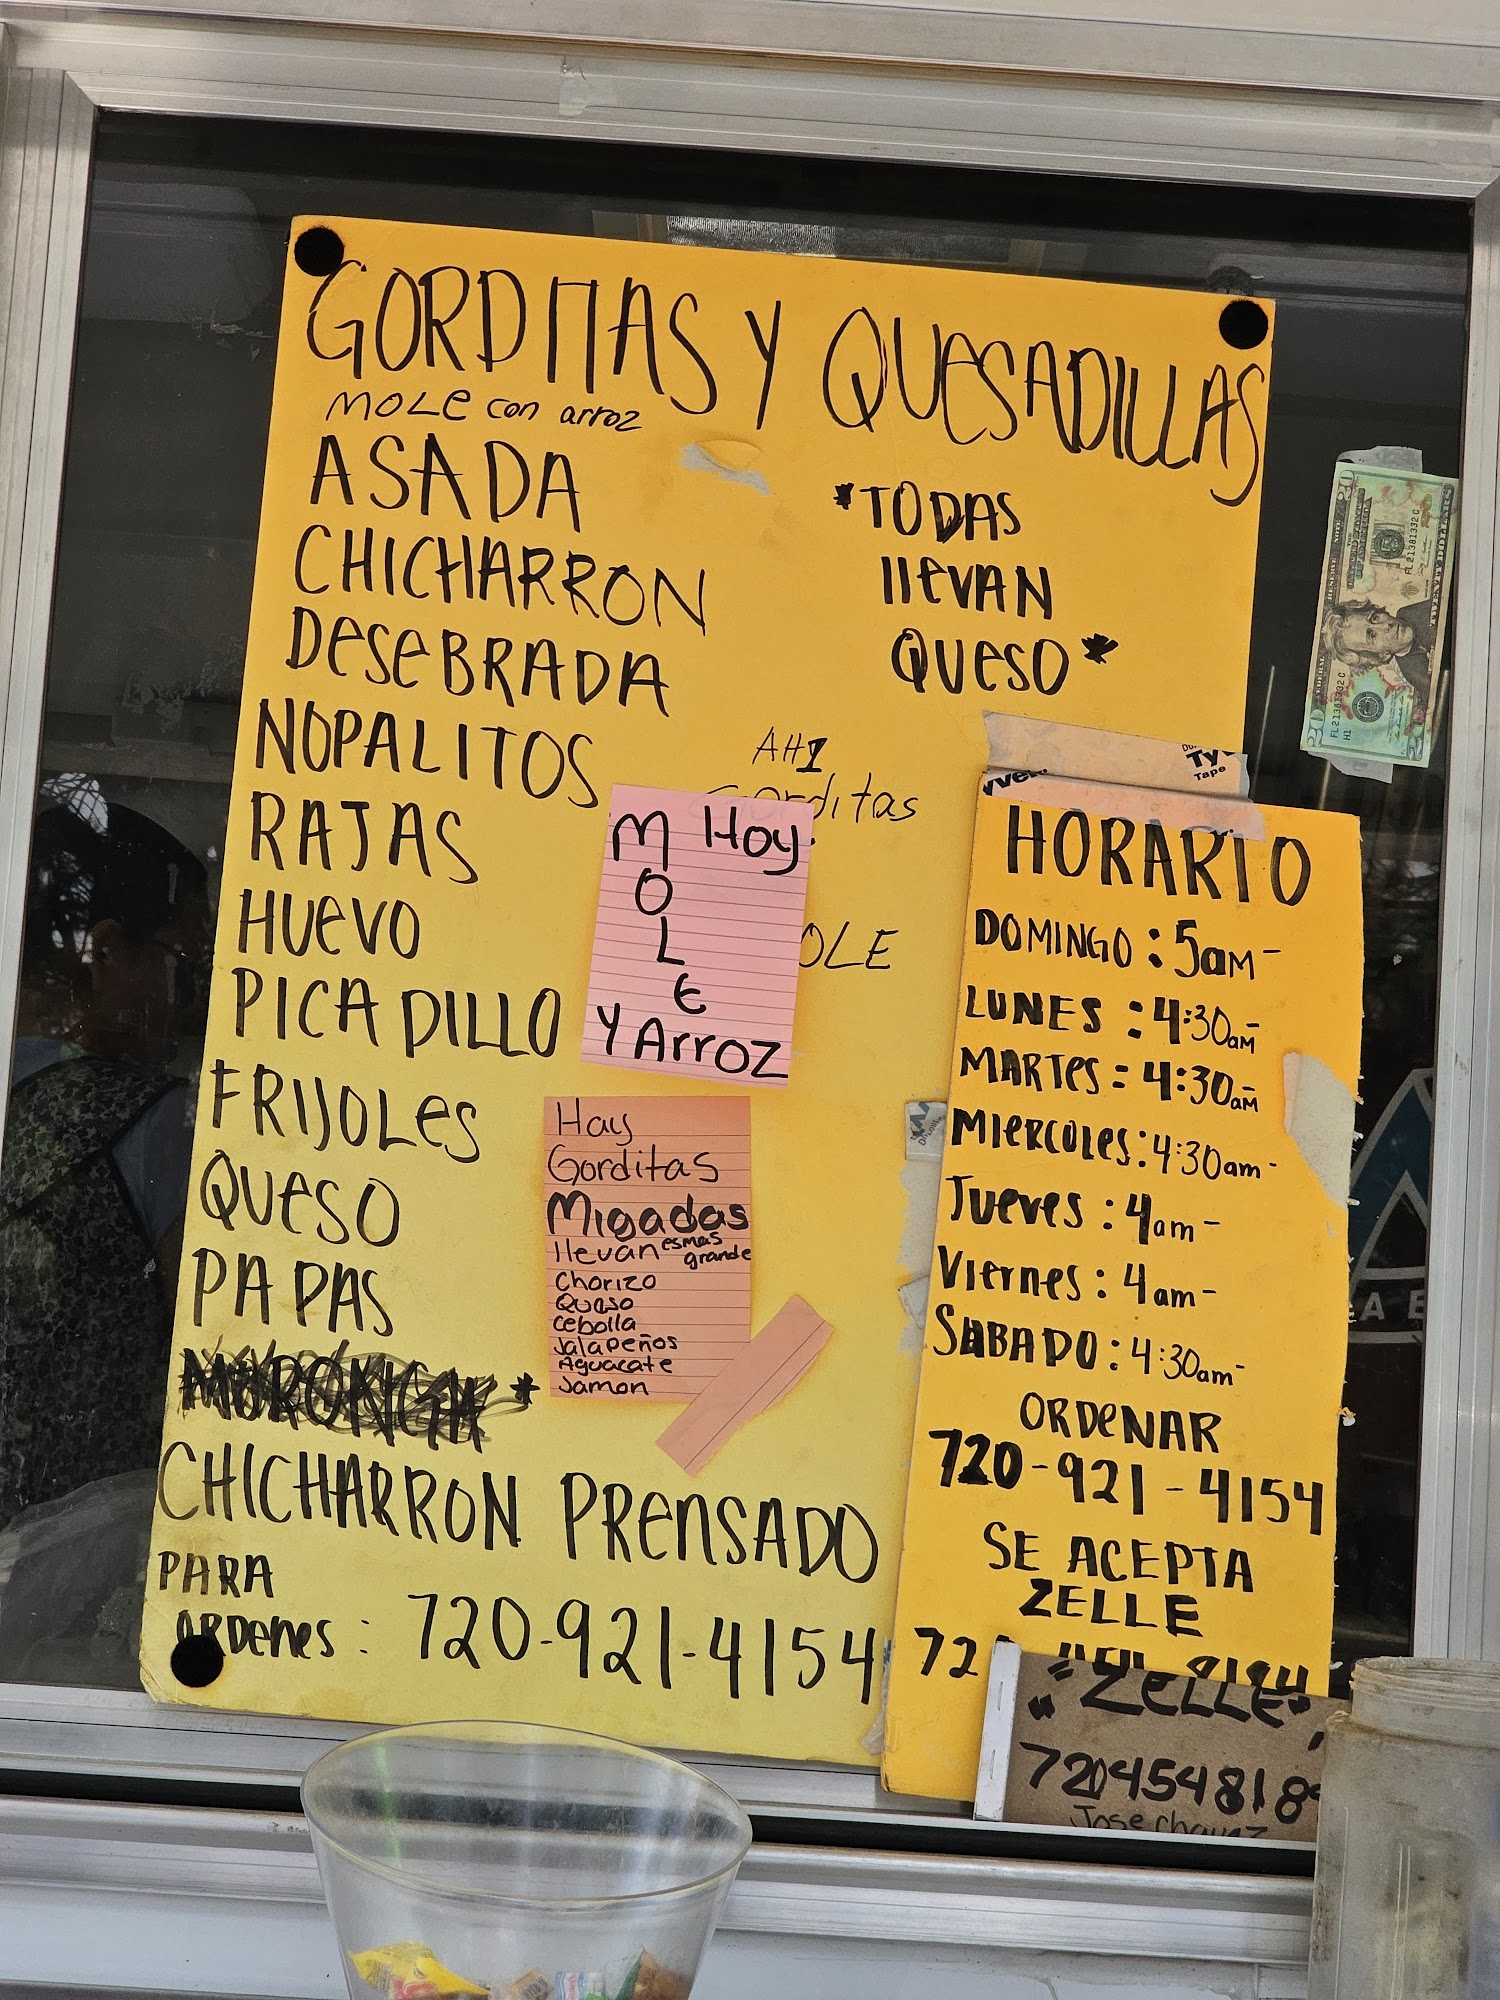 GORDITAS Y QUESADILLAS
MOLE con arroz
ASADA
CHICHARRON
DESEBRADA
NOPALITOS
RAJAS
HUEVO
PICADILLO
FRIJOLES
QUESO
PAPAS
MORONGA *
CHICHARRON PRENSADO
PARA
ORDENES: 720-921-4154
*TODAS
llEVAN
QUESO*
Gorditas
OLE
Hoy
MOLE
Y Arroz
Hay
Gorditas
Migadas
llevan esmas
grande
Chorizo
Queso
Cebolla
Jalapeños
Aguacate
Jamon
Ty
Tape
HORARIO
DOMINGO: 5am-
LUNES: 4:30am-
MARTES: 4:30am
MIERCOLES: 4:30am-
JUEVES: 4am-
Viernes: 4am-
SABADO: 4:30am-
ORDENAR
720-921-4154
SE ACEPTA
ZELLE
"ZELLE"
720454818
Jose chavez
FL 21381332 C
FL 21381332 C
H1
20